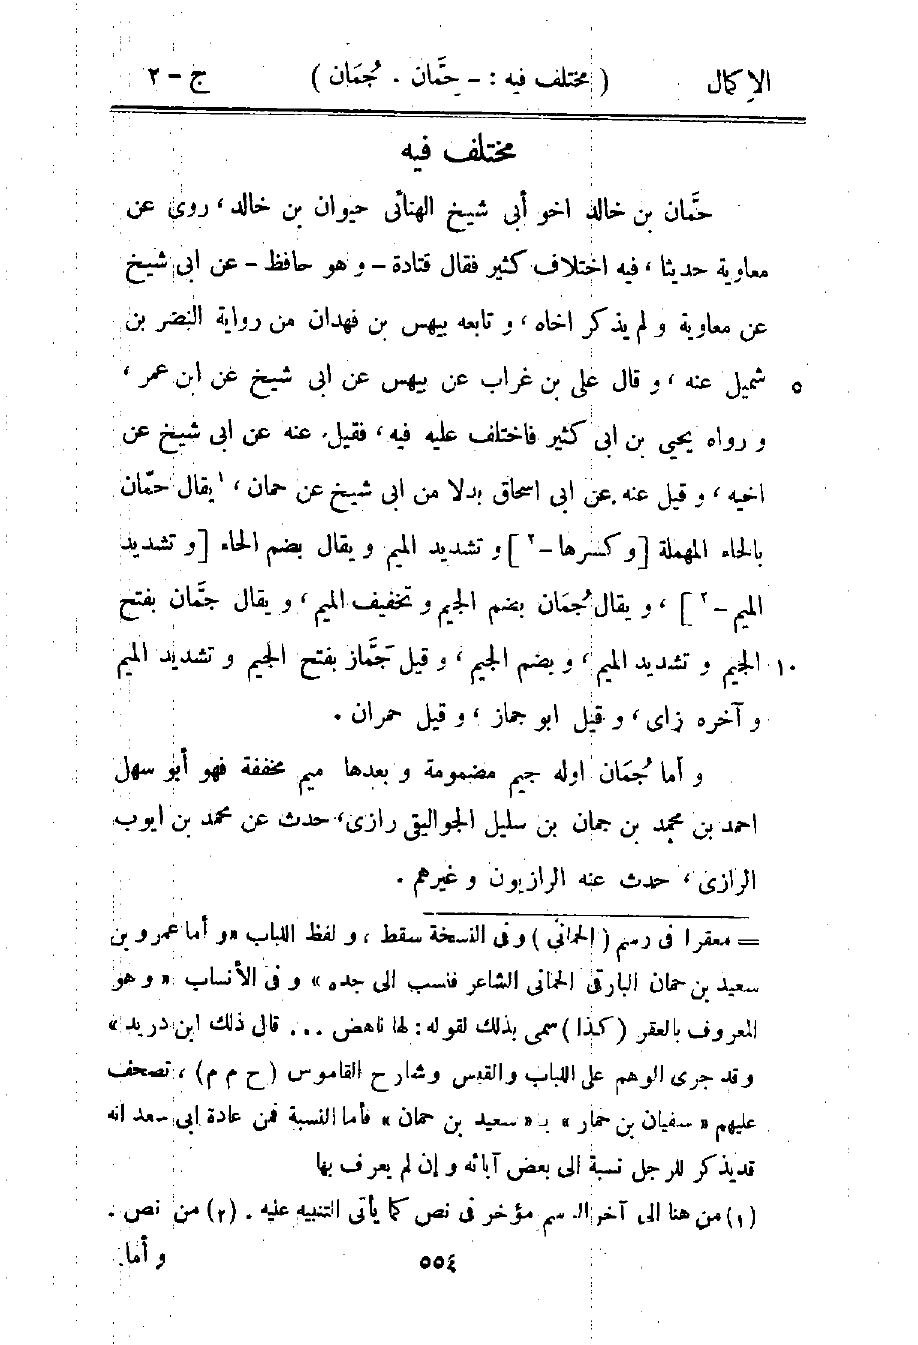 الإكمال ( مختلف فيه : – حِمَّان . جُمَان ) ج – ٢
مختلف فيه
حمَّان بن خالد اخو أبى شيخ الهنائى حيوان بن خالد، روى عن
معاوية حديثا، فيه اختلاف كثير فقال قتادة – و هو حافظ – عن ابى شيخ
عن معاوية و لم يذكر اخاه، و تابعه بيهس بن فهدان من رواية النضر بن
شميل عنه، و قال على بن غراب عن بيهس عن ابى شيخ عن ابن عمر، ٥
و رواه يحيى بن ابى كثير فاختلف عليه فيه، فقيل عنه عن ابى شيخ عن
اخيه، و قيل عنه عن ابى اسحاق بدلا من ابى شيخ عن حمان، ١ يقال حمّان
بالحاء المهملة [و كسرها – ٢] و تشديد الميم و يقال بضم الحاء [و تشديد
الميم – ٢]، و يقال جُمَان بضم الجيم و تخفيف الميم، و يقال جمَّان بفتح
الجيم و تشديد الميم، و بضم الجيم، و قيل جَمَّاز بفتح الجيم و تشديد الميم ١٠
و آخره زاى، و قيل ابو جماز، و قيل حمران .
و أما جُمَان اوله جيم مضمومة و بعدها ميم مخففة فهو أبو سهل
احمد بن محمد بن جمان بن سليل الجواليقى رازى، حدث عن محمد بن ايوب
الرازى، حدث عنه الرازيون و غيرهم .
= معقرا فى رسم (الحمانى) و فى النسخة سقط، و لفظ اللباب «و أما عمرو بن
سعيد بن حمان البارقى الحمانى الشاعر فنسب الى جده» و فى الأنساب «و هو
المعروف بالعقر (كذا) سمى بذلك لقوله: لها ناهض ... قال ذلك ابن دريد»
و قد جرى الوهم على اللباب والقبس وشارح القاموس (ح م م)، تصحف
عليهم «سفيان بن حمار» بـ «سعيد بن حمان» فأما النسبة فمن عادة ابى سعد انه
قد يذكر للرجل نسبة الى بعض آبائه و إن لم يعرف بها
(١) من هنا الى آخر الرسم مؤخر فى نص كما يأتى التنبيه عليه . (٢) من نص .
٥٥٤ و أما